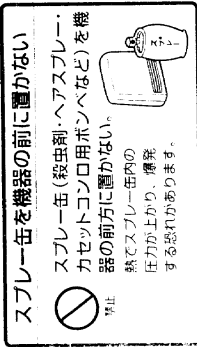 スプレー缶を機器の前に置かない
スプレー缶(殺虫剤・ヘアスプレー・
カセットコンロ用ボンベなど)を機
器の前方に置かない。
熱でスプレー缶内の
圧力が上がり、爆発
する恐れがあります。
禁止
スプレー